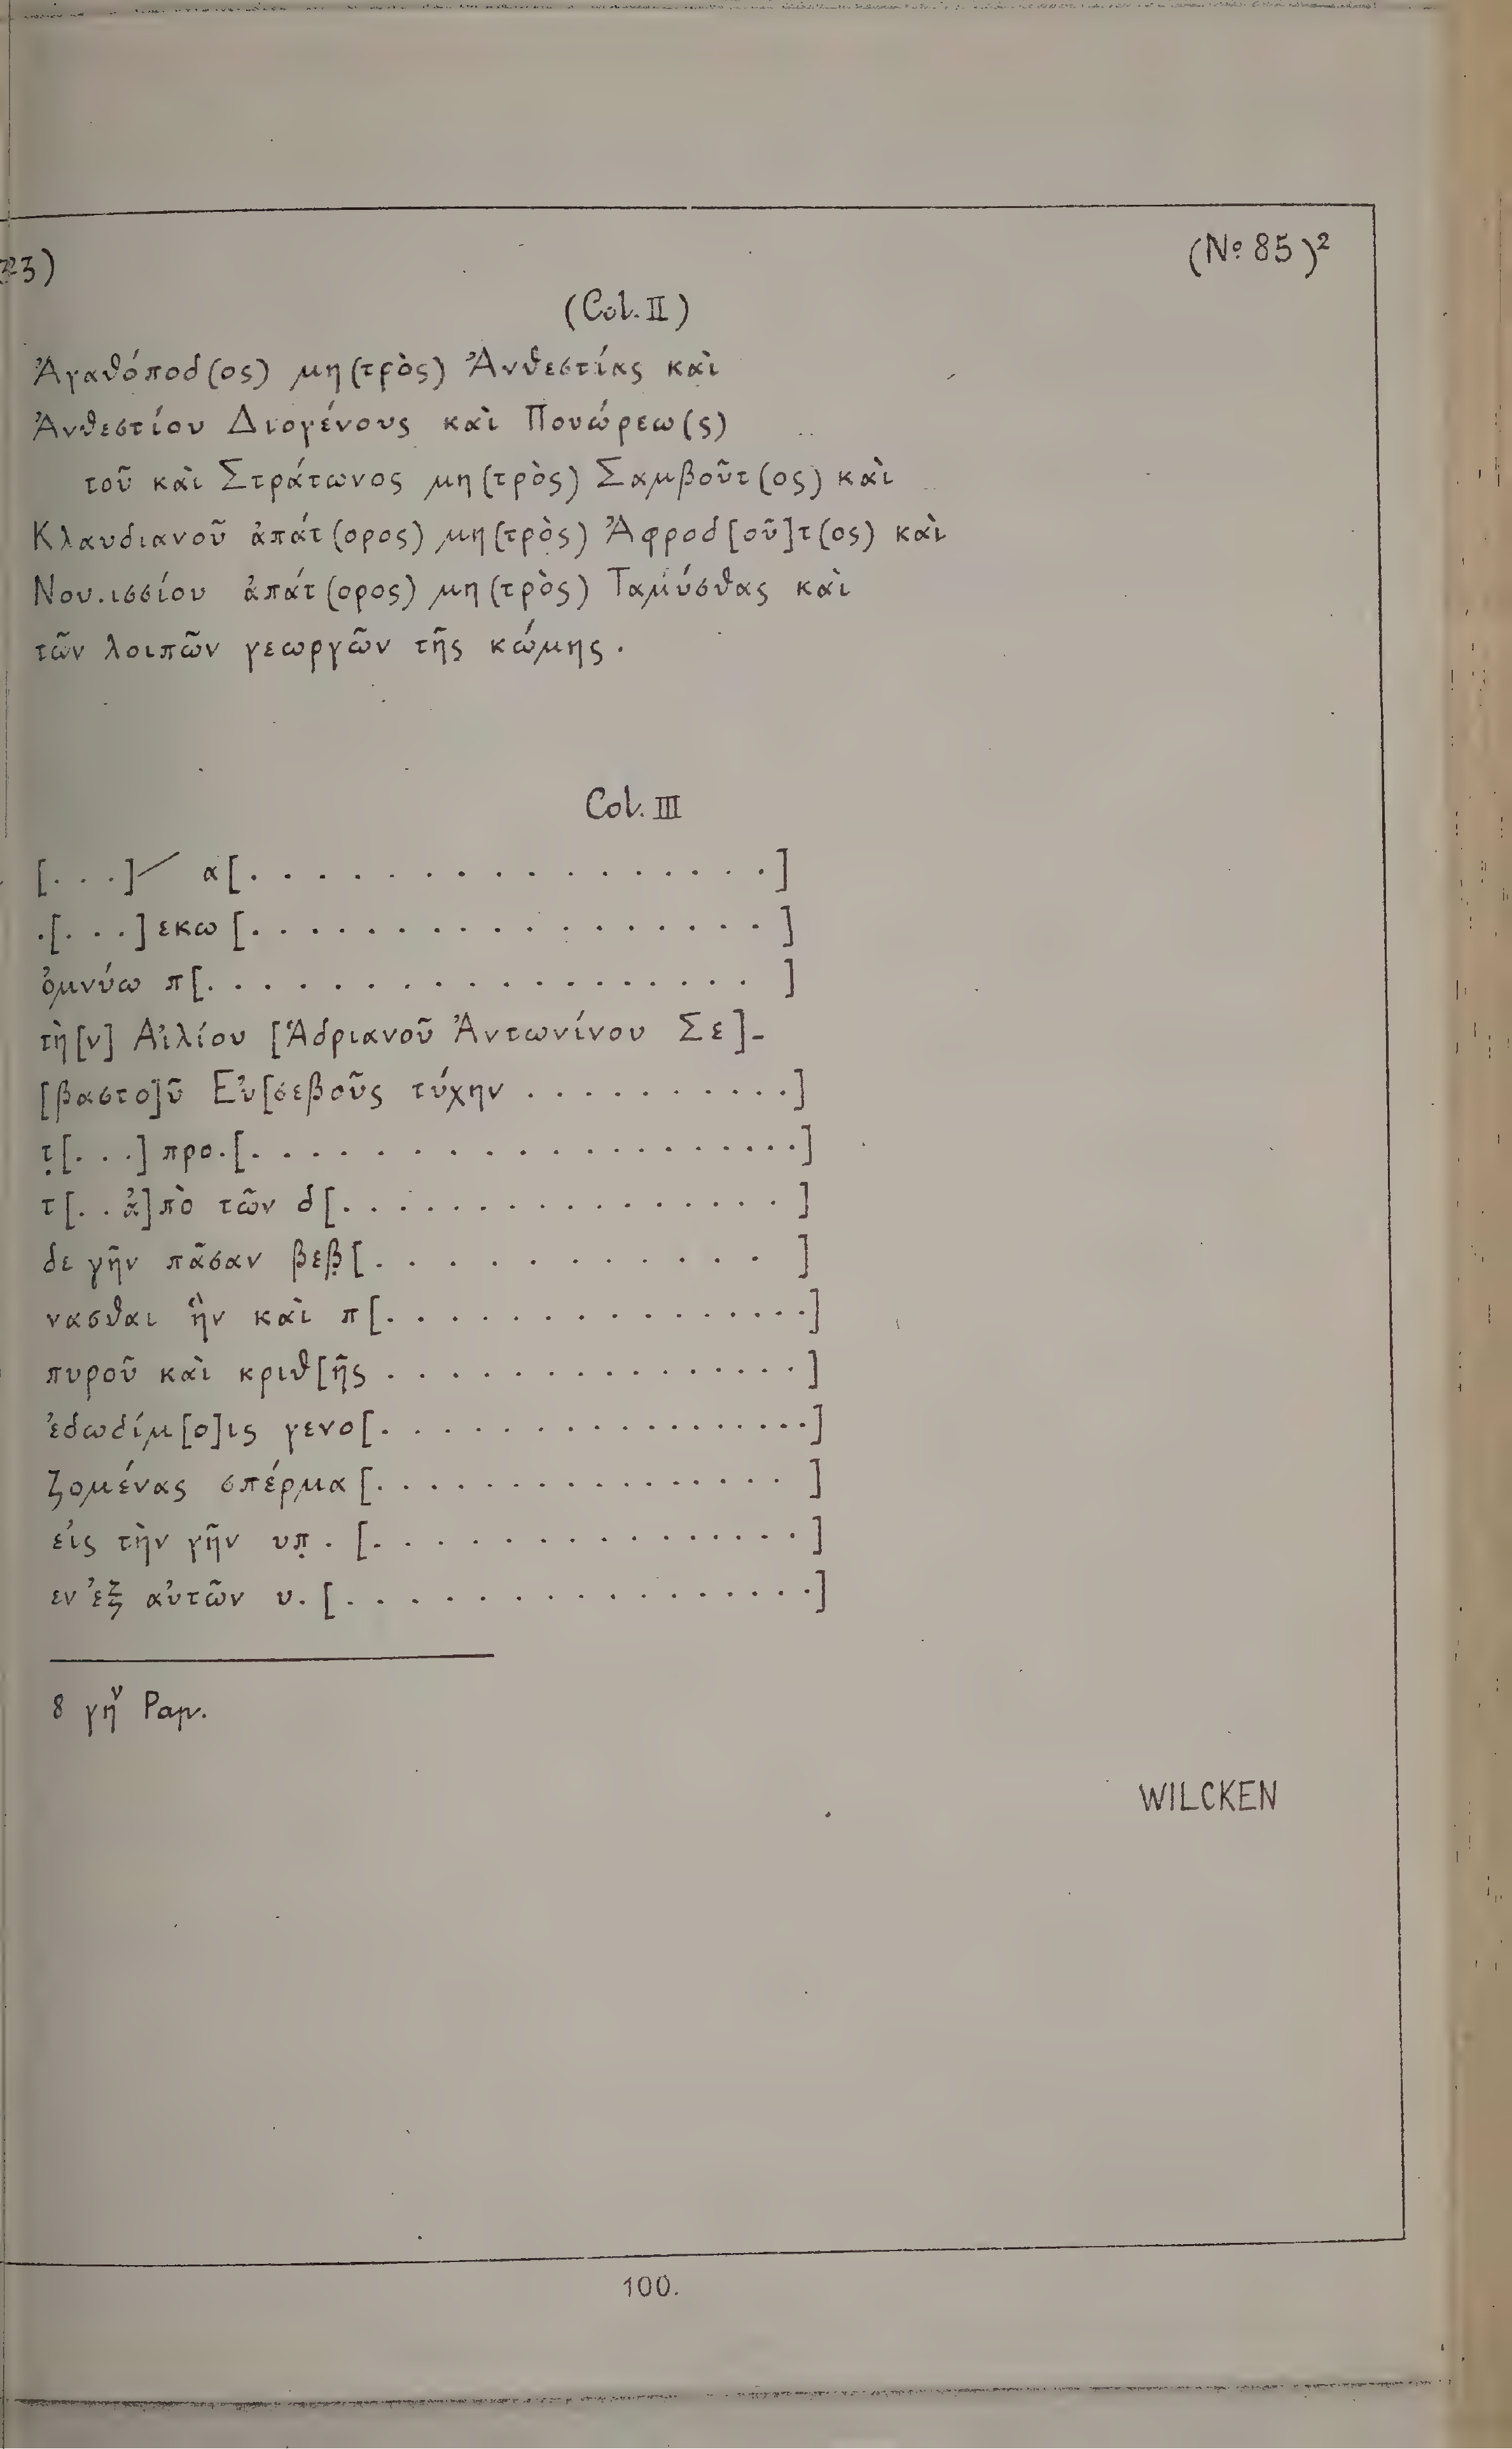 323)
(No 85)²
(Col. II)
Ἀγαθόποδ(ος) μη(τρὸς) Ἀνθεστίας καὶ
Ἀνθεστίου Διογένους καὶ Πουώρεω(ς)
τοῦ καὶ Στράτωνος μη(τρὸς) Σαμβοῦτ(ος) καὶ
Κλαυδιανοῦ ἀπάτ(ορος) μη(τρὸς) Ἀφροδ[οῦ]τ(ος) καὶ
Νου.ισσίου ἀπάτ(ορος) μη(τρὸς) Ταμύσθας καὶ
τῶν λοιπῶν γεωργῶν τῆς κώμης.
Col. III
[. . .]∕ α[. . . . . . . . . . . . . . . .]
.[. . .]εκω[. . . . . . . . . . . . . . . . . ]
ὀμνύω π[. . . . . . . . . . . . . . . . . ]
τὴ[ν] Αἰλίου [Ἁδριανοῦ Ἀντωνίνου Σε]-
[βαστο]ῦ Εὐ[σεβοῦς τύχην . . . . . . . . . .]
τ̣[. . .] προ.[. . . . . . . . . . . . . . . . . . .]
τ[. . ἀ]πὸ τῶν δ[. . . . . . . . . . . . . . . . ]
δε γῆν πᾶσαν βεβ̣[. . . . . . . . . . . ]
νασθαι ἣν καὶ π[. . . . . . . . . . . . . . .]
πυροῦ καὶ κριθ[ῆς . . . . . . . . . . . . . . .]
ἐδωδίμ[ο]ις γενο[. . . . . . . . . . . . . . . . .]
ζομένας σπέρμα[. . . . . . . . . . . . . . . ]
εἰς τὴν γῆν υπ̣.[. . . . . . . . . . . . . . .]
εν ἐξ αὐτῶν υ.[. . . . . . . . . . . . . . . .]
8 γηᵛ Pap.
WILCKEN
100.